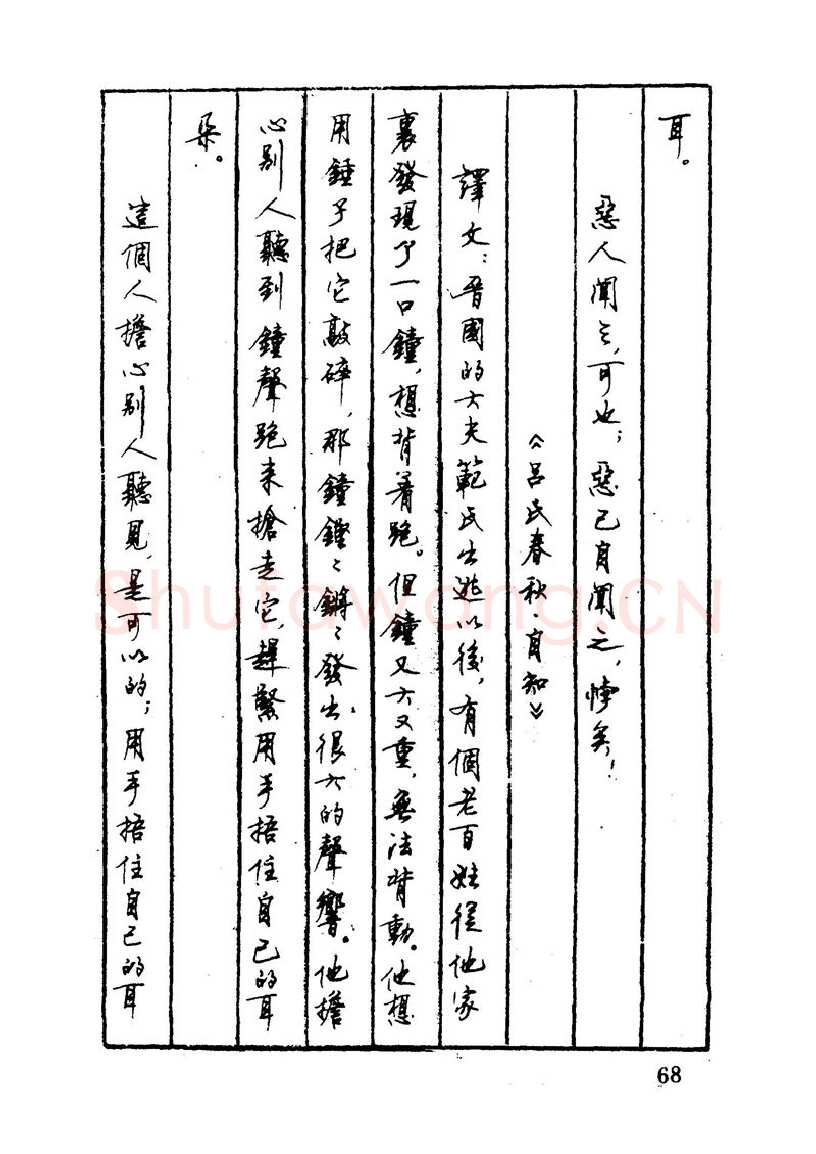 耳。
惡人聞之，可也；惡己自聞之，悖矣！
《呂氏春秋·自知》
譯文：晉國的大夫範氏出逃以後，有個老百姓從他家
裏發現了一口鐘，想背着跑。但鐘又大又重，無法背動。他想
用錘子把它敲碎，那鐘鏗〻鏘〻發出很大的聲響。他擔
心别人聽到鐘聲跑来搶走它，趕緊用手捂住自己的耳
朵。
這個人擔心别人聽見，是可以的；用手捂住自己的耳
68
Shutawang.CN